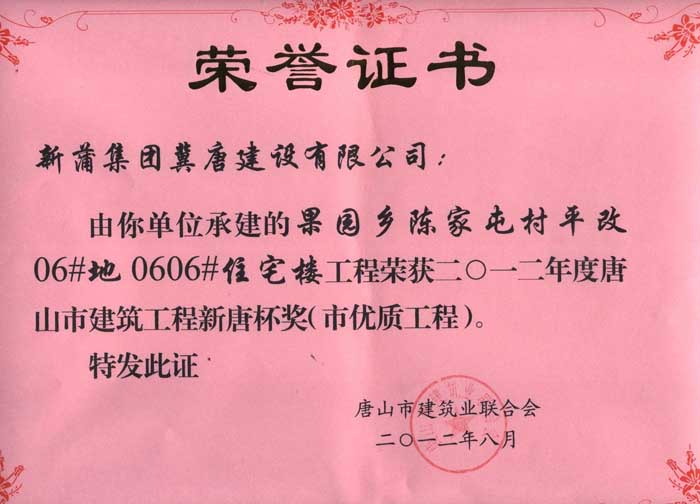 荣誉证书
新蒲集团冀唐建设有限公司：
由你单位承建的果园乡陈家屯村平改
06#地0606#住宅楼工程荣获二〇一二年度唐
山市建筑工程新唐杯奖（市优质工程）。
特发此证
唐山市建筑业联合会
二〇一二年八月